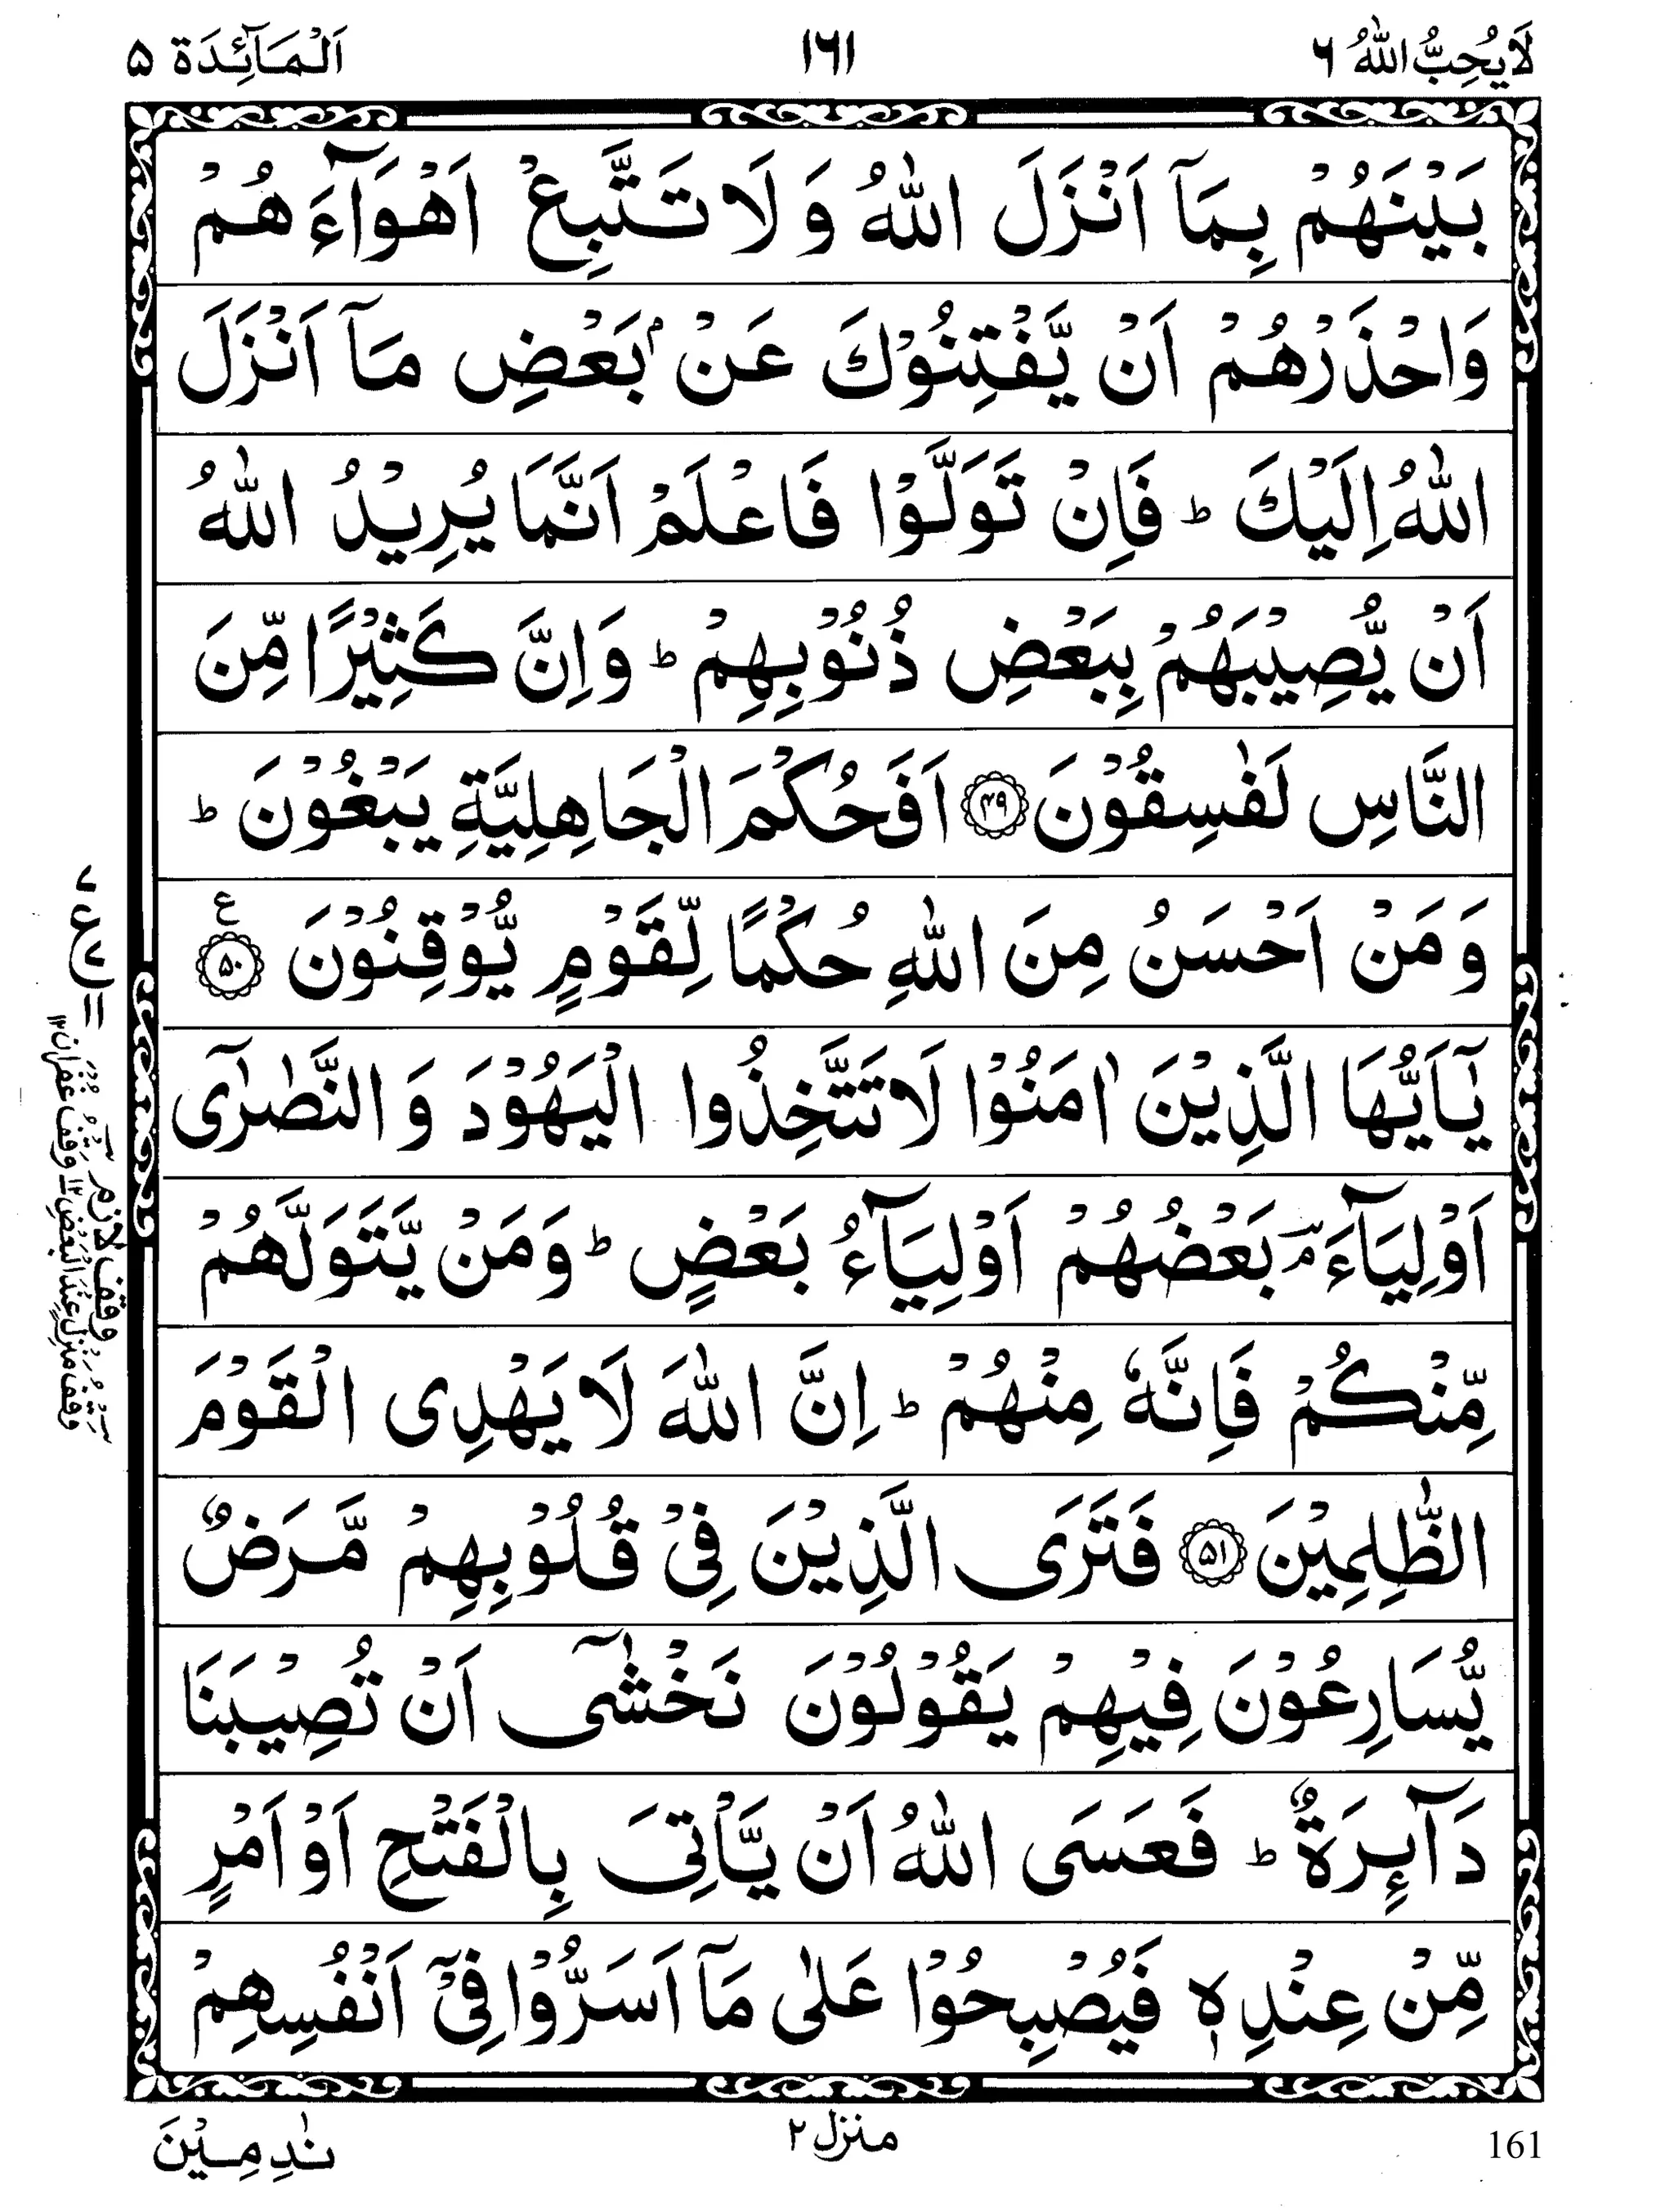 لَا يُحِبُّ اللّٰهُ ۶
۱۶۱
اَلْمَآئِدَة ۵
بَيْنَهُمْ بِمَآ اَنْزَلَ اللّٰهُ وَ لَا تَتَّبِعْ اَهْوَآءَهُمْ
وَاحْذَرْهُمْ اَنْ يَّفْتِنُوْكَ عَنْۢ بَعْضِ مَآ اَنْزَلَ
اللّٰهُ اِلَيْكَ ؕ فَاِنْ تَوَلَّوْا فَاعْلَمْ اَنَّمَا يُرِيْدُ اللّٰهُ
اَنْ يُّصِيْبَهُمْ بِبَعْضِ ذُنُوْبِهِمْ ؕ وَاِنَّ كَثِيْرًا مِّنَ
النَّاسِ لَفٰسِقُوْنَ ۴۹ اَفَحُكْمَ الْجَاهِلِيَّةِ يَبْغُوْنَ ؕ
وَ مَنْ اَحْسَنُ مِنَ اللّٰهِ حُكْمًا لِّقَوْمٍ يُّوْقِنُوْنَ ۵۰ ع
يٰۤاَيُّهَا الَّذِيْنَ اٰمَنُوْا لَا تَتَّخِذُوا الْيَهُوْدَ وَ النَّصٰرٰۤى
اَوْلِيَآءَ ۘؔ بَعْضُهُمْ اَوْلِيَآءُ بَعْضٍ ؕ وَمَنْ يَّتَوَلَّهُمْ
مِّنْكُمْ فَاِنَّهٗ مِنْهُمْ ؕ اِنَّ اللّٰهَ لَا يَهْدِى الْقَوْمَ
الظّٰلِمِيْنَ ۵۱ فَتَرَى الَّذِيْنَ فِىْ قُلُوْبِهِمْ مَّرَضٌ
يُّسَارِعُوْنَ فِيْهِمْ يَقُوْلُوْنَ نَخْشٰٓى اَنْ تُصِيْبَنَا
دَآئِرَةٌ ؕ فَعَسَى اللّٰهُ اَنْ يَّاْتِىَ بِالْفَتْحِ اَوْ اَمْرٍ
مِّنْ عِنْدِهٖ فَيُصْبِحُوْا عَلٰى مَآ اَسَرُّوْا فِىْۤ اَنْفُسِهِمْ
نٰدِمِيْنَ
منزل ۲
161